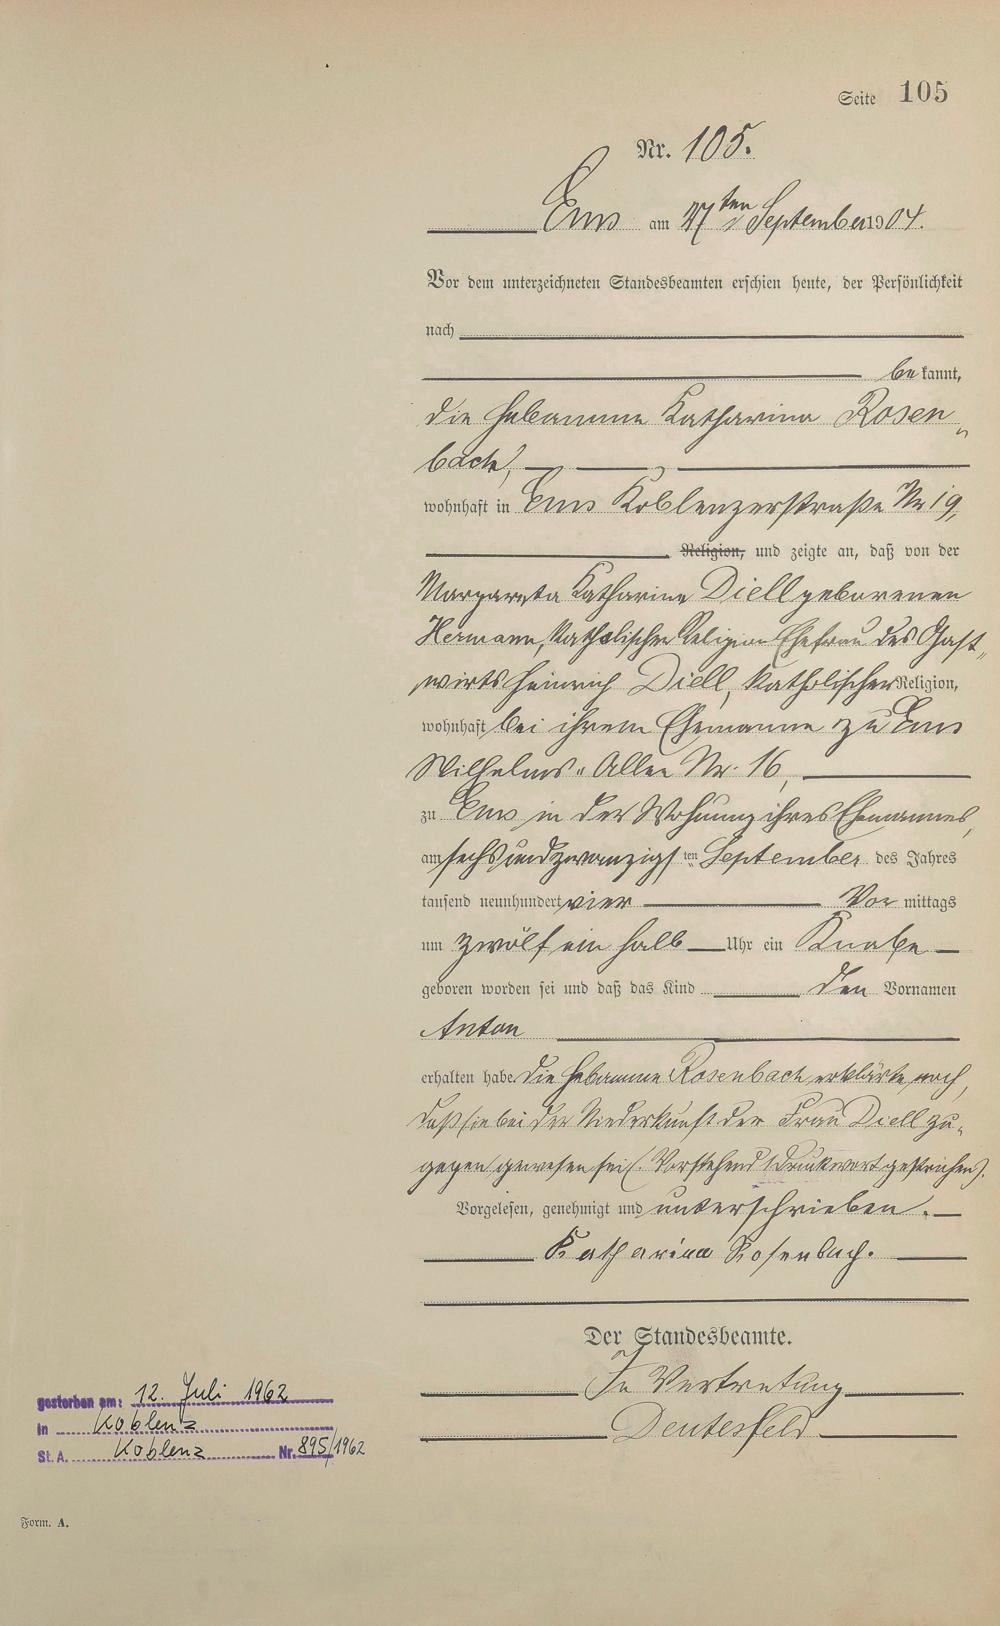 Seite 105
Nr. 105.
Ems am 27ten September 1904.
Vor dem unterzeichneten Standesbeamten erschien heute, der Persönlichkeit
nach
be kannt,
die Hebamme Katharina Rosen„
bach,
wohnhaft in Ems Koblenzerstraße Nr 19,
Religion, und zeigte an, daß von der
Margareta Katharina Diell geborenen
Hermann, katholischer Religion Ehefrau des Gast„
wirts Heinrich Diell, katholischer Religion,
wohnhaft bei ihrem Ehemanne zu Ems
Wilhelms„Allee Nr. 16,
zu Ems in der Wohnung ihres Ehemannes,
am sechsundzwanzigsten September des Jahres
tausend neunhundert vier Vor mittags
um zwölf ein halb Uhr ein Knabe
geboren worden sei und daß das Kind den Vornamen
Anton
erhalten habe. Die Hebamme Rosenbach erklärte noch,
daß sie bei der Niederkunft der Frau Diell zu„
gegen gewesen sei (. Vorstehend 1 Druckwort gestrichen).
Vorgelesen, genehmigt und unterschrieben.
Katharina Rosenbach.
Der Standesbeamte.
In Vertretung
Deutesfeld
gestorben am: 12. Juli 1962
in Koblenz
St. A. Koblenz Nr. 895/1962
Form. A.